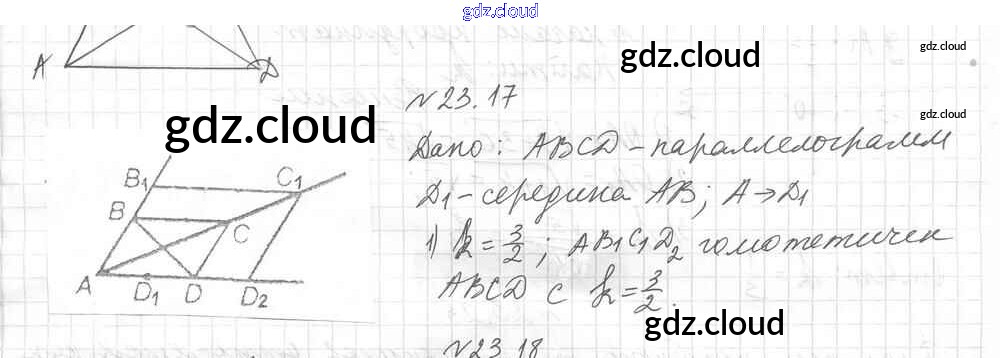 gdz.cloud
gdz.cloud
gdz.cloud
A D
№23.17
gdz.cloud
gdz.cloud
Дано: ABCD - параллелограмм
B1 C1
D1 - середина AB; A → D1
B C
1) k = 3/2; AB1C1D2 гомотетичен
A D1 D D2
ABCD с k = 3/2.
gdz.cloud
№23.18